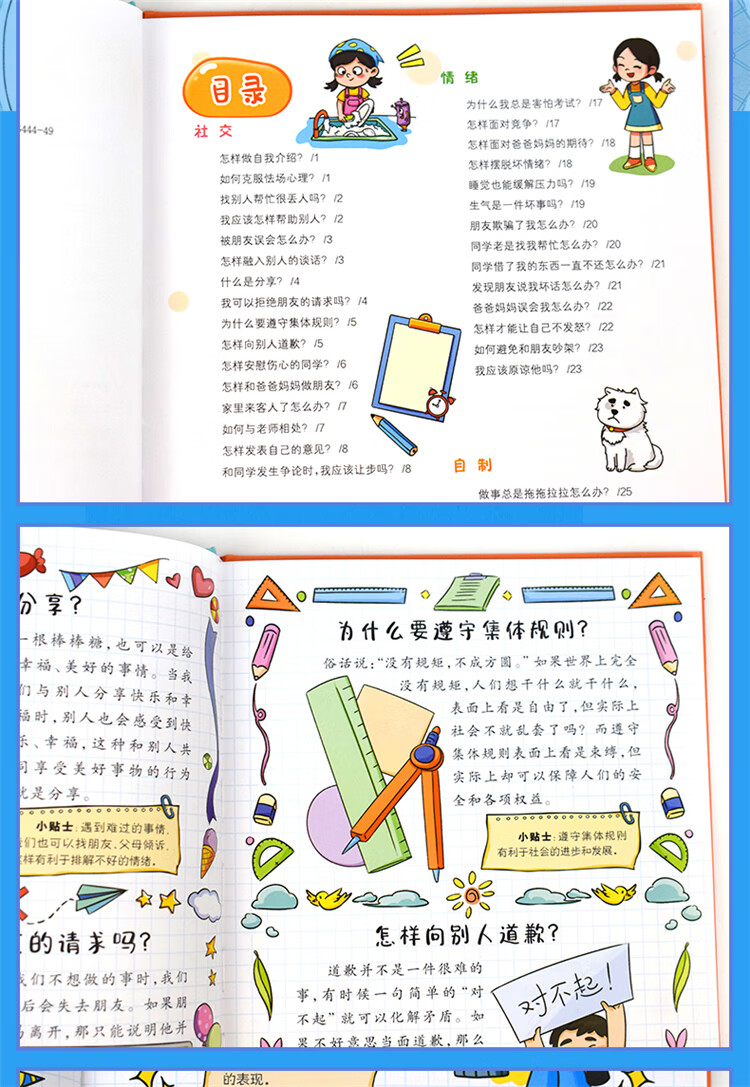 目录
444-49
社交
怎样做自我介绍? /1
如何克服怯场心理? /1
找别人帮忙很丢人吗? /2
我应该怎样帮助别人? /2
被朋友误会怎么办? /3
怎样融入别人的谈话? /3
什么是分享? /4
我可以拒绝朋友的请求吗? /4
为什么要遵守集体规则? /5
怎样向别人道歉? /5
怎样安慰伤心的同学? /6
怎样和爸爸妈妈做朋友? /6
家里来客人了怎么办? /7
如何与老师相处? /7
怎样发表自己的意见? /8
和同学发生争论时,我应该让步吗? /8
情绪
为什么我总是害怕考试? /17
怎样面对竞争? /17
怎样面对爸爸妈妈的期待? /18
怎样摆脱坏情绪? /18
睡觉也能缓解压力吗? /19
生气是一件坏事吗? /19
朋友欺骗了我怎么办? /20
同学老是找我帮忙怎么办? /20
同学借了我的东西一直不还怎么办? /21
发现朋友说我坏话怎么办? /21
爸爸妈妈误会我怎么办? /22
怎样才能让自己不发怒? /22
如何避免和朋友吵架? /23
我应该原谅他吗? /23
自制
做事总是拖拖拉拉怎么办? /25
分享?
一根棒棒糖,也可以是给
幸福、美好的事情。当我
们与别人分享快乐和幸
福时,别人也会感受到快
乐、幸福,这种和别人共
同享受美好事物的行为
就是分享。
小贴士:遇到难过的事情,
我们也可以找朋友、父母倾诉,
这样有利于排解不好的情绪。
的请求吗?
我们不想做的事时,我们
后会失去朋友。如果朋
离开,那只能说明他并
为什么要遵守集体规则?
俗话说:“没有规矩,不成方圆。”如果世界上完全
没有规矩,人们想干什么就干什么,
表面上看是自由了,但实际上
社会不就乱套了吗?而遵守
集体规则表面上看是束缚,但
实际上却可以保障人们的安
全和各项权益。
小贴士:遵守集体规则
有利于社会的进步和发展。
怎样向别人道歉?
道歉并不是一件很难的
事,有时候一句简单的“对
不起”就可以化解矛盾。如
果不好意思当面道歉,那么
对不起!
的表现。